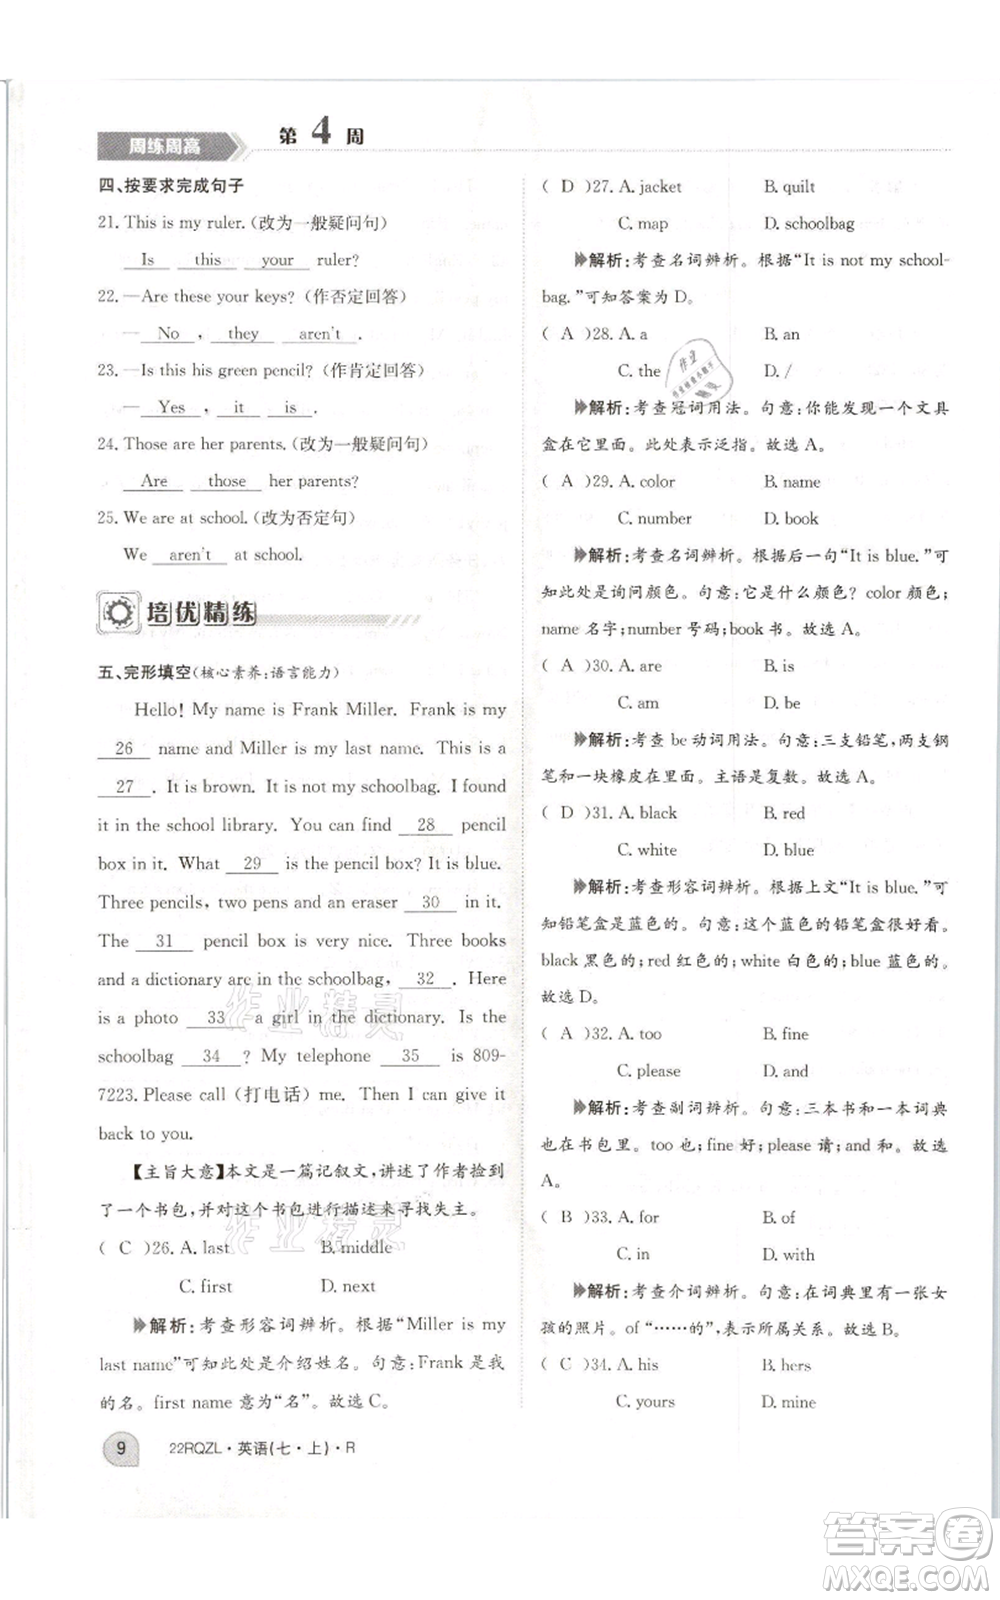 周练周高
第 4 周
四、按要求完成句子
21. This is my ruler.(改为一般疑问句)
Is this your ruler?
22. —Are these your keys?(作否定回答)
— No , they aren't .
23. —Is this his green pencil?(作肯定回答)
— Yes , it is .
24. Those are her parents.(改为一般疑问句)
Are those her parents?
25. We are at school.(改为否定句)
We aren't at school.
培优精练
五、完形填空(核心素养:语言能力)
Hello! My name is Frank Miller. Frank is my
26 name and Miller is my last name. This is a
27 . It is brown. It is not my schoolbag. I found
it in the school library. You can find 28 pencil
box in it. What 29 is the pencil box? It is blue.
Three pencils, two pens and an eraser 30 in it.
The 31 pencil box is very nice. Three books
and a dictionary are in the schoolbag, 32 . Here
is a photo 33 a girl in the dictionary. Is the
schoolbag 34 ? My telephone 35 is 809-
7223. Please call (打电话) me. Then I can give it
back to you.
【主旨大意】本文是一篇记叙文,讲述了作者捡到
了一个书包,并对这个书包进行描述来寻找失主。
( C )26. A. last B. middle
C. first D. next
解析:考查形容词辨析。根据“Miller is my
last name”可知此处是介绍姓名。句意:Frank 是我
的名。first name 意为“名”。故选 C。
9 22RQZL·英语(七·上)·R
( D )27. A. jacket B. quilt
C. map D. schoolbag
解析:考查名词辨析。根据“It is not my school-
bag.”可知答案为 D。
( A )28. A. a B. an
C. the D. /
解析:考查冠词用法。句意:你能发现一个文具
盒在它里面。此处表示泛指。故选 A。
( A )29. A. color B. name
C. number D. book
解析:考查名词辨析。根据后一句“It is blue.”可
知此处是询问颜色。句意:它是什么颜色? color 颜色;
name 名字;number 号码;book 书。故选 A。
( A )30. A. are B. is
C. am D. be
解析:考查 be 动词用法。句意:三支铅笔,两支钢
笔和一块橡皮在里面。主语是复数。故选 A。
( D )31. A. black B. red
C. white D. blue
解析:考查形容词辨析。根据上文“It is blue.”可
知铅笔盒是蓝色的。句意:这个蓝色的铅笔盒很好看。
black 黑色的;red 红色的;white 白色的;blue 蓝色的。
故选 D。
( A )32. A. too B. fine
C. please D. and
解析:考查副词辨析。句意:三本书和一本词典
也在书包里。too 也;fine 好;please 请;and 和。故选
A。
( B )33. A. for B. of
C. in D. with
解析:考查介词辨析。句意:在词典里有一张女
孩的照片。of “……的”,表示所属关系。故选 B。
( C )34. A. his B. hers
C. yours D. mine
作业精灵
作业精灵
答案卷
MXQE.COM